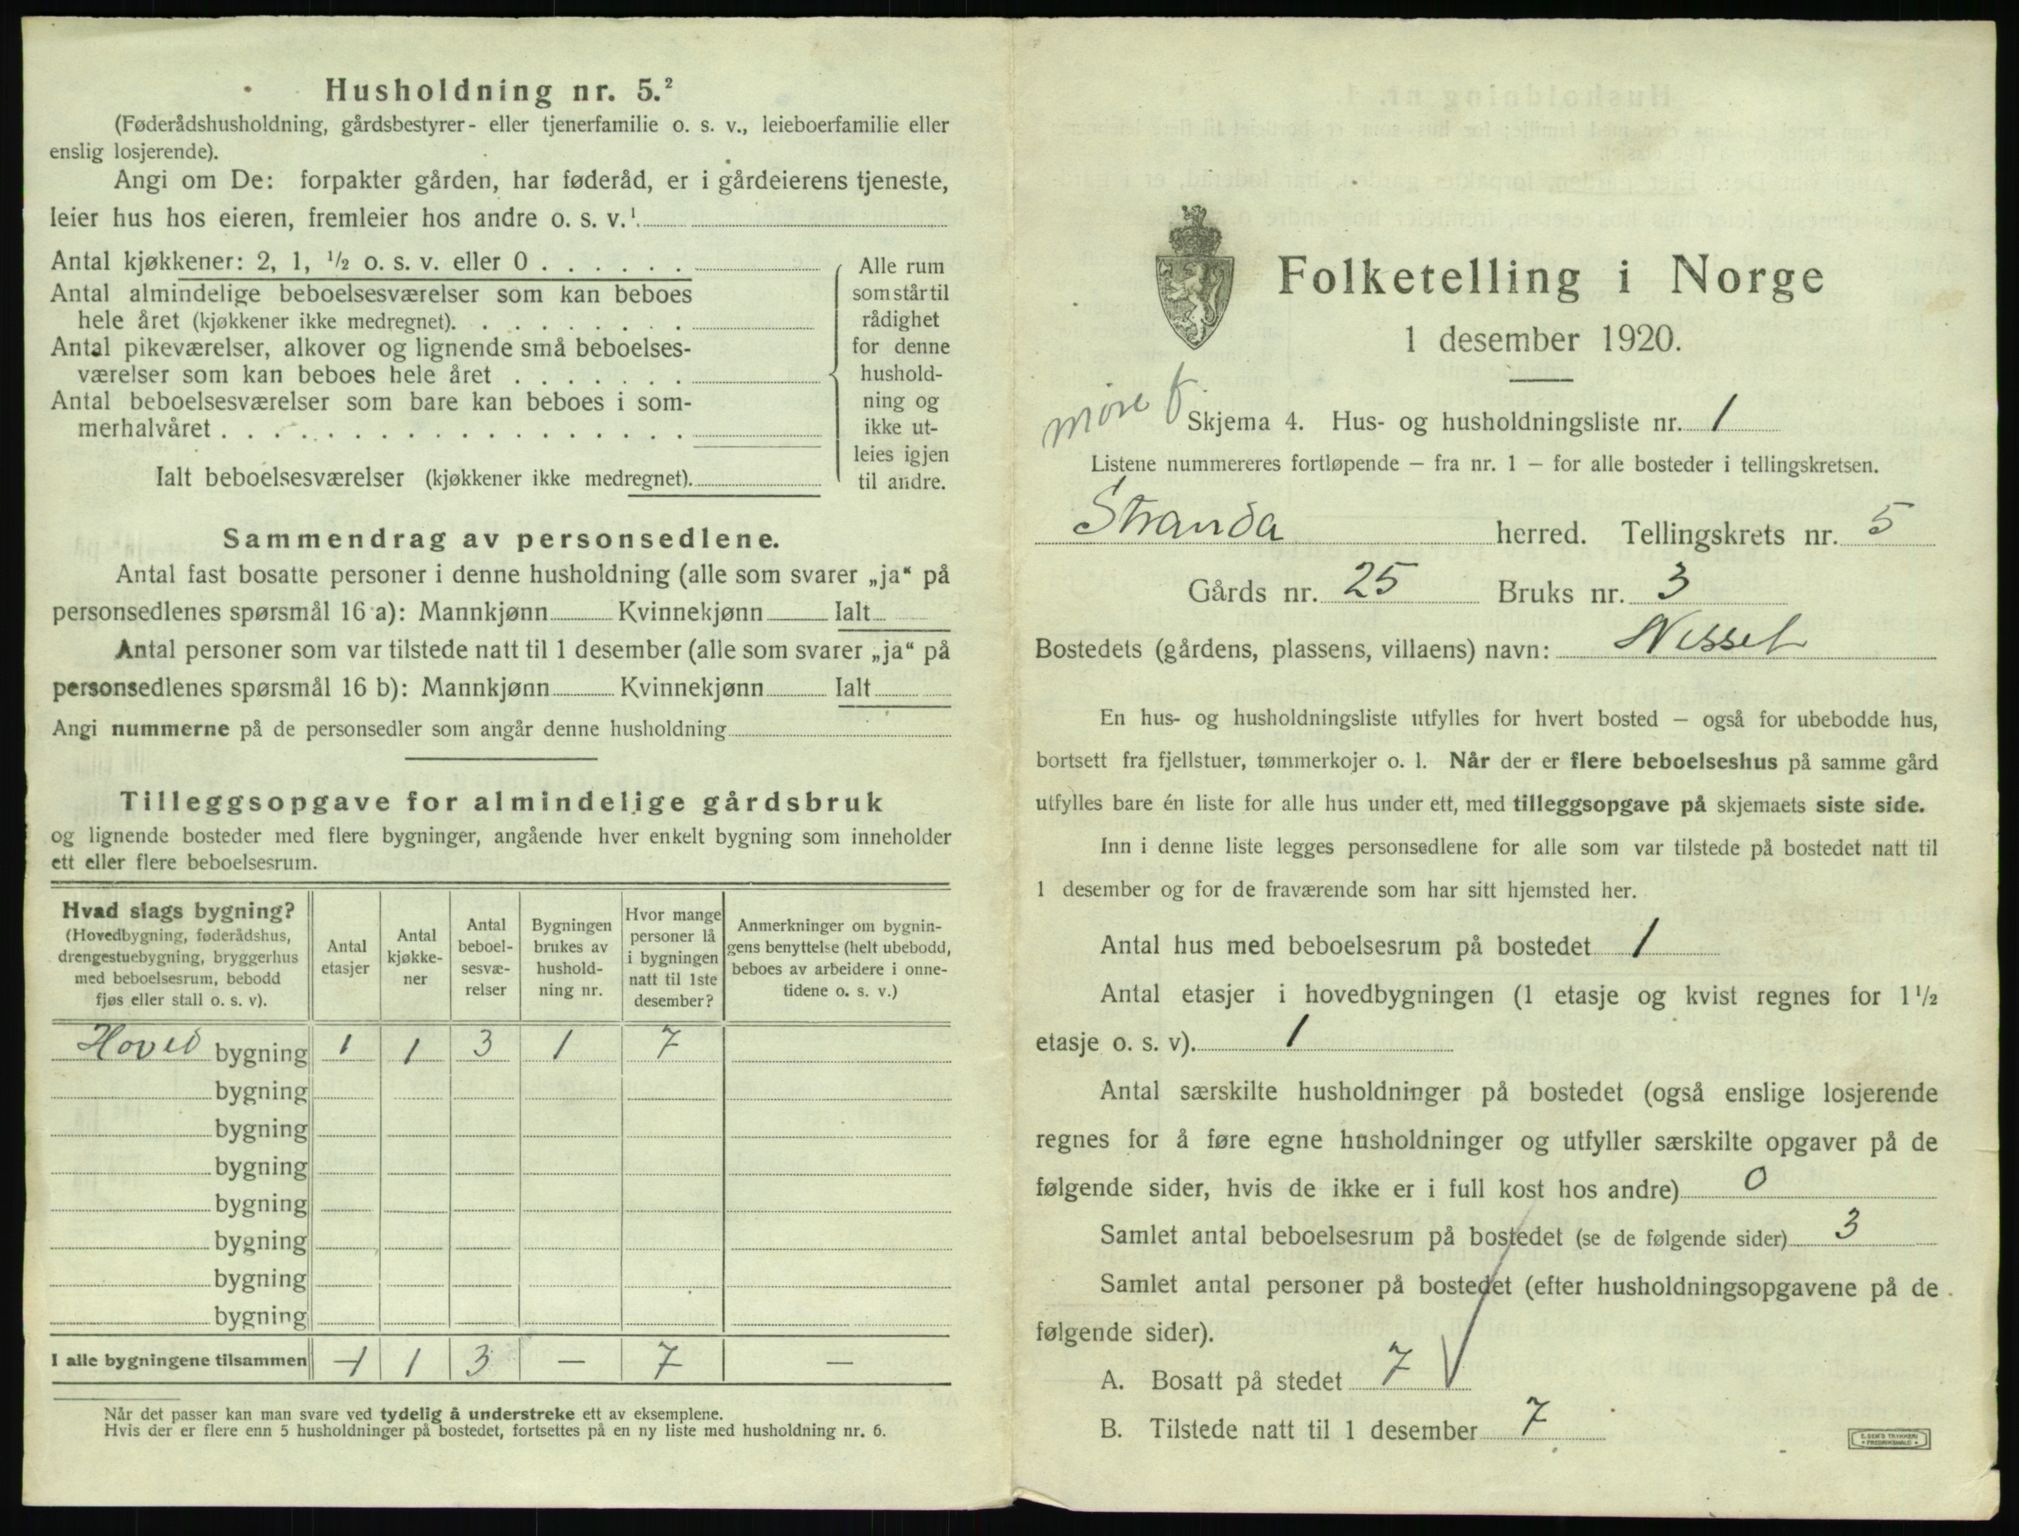 Husholdning nr. 5.²
(Føderådshusholdning, gårdsbestyrer- eller tjenerfamilie o. s. v., leieboerfamilie eller
enslig losjerende).
Angi om De: forpakter gården, har føderåd, er i gårdeierens tjeneste,
leier hus hos eieren, fremleier hos andre o. s. v.¹
Antal kjøkkener: 2, 1, ½ o. s. v. eller 0 . . . . . .
Antal almindelige beboelsesværelser som kan beboes
hele året (kjøkkener ikke medregnet). . . . . . . . .
Antal pikeværelser, alkover og lignende små beboelses-
værelser som kan beboes hele året . . . . . . .
Antal beboelsesværelser som bare kan beboes i som-
merhalvåret . . . . . . . . . . . . . . . . . .
Ialt beboelsesværelser (kjøkkener ikke medregnet).
Alle rum
som står til
rådighet
for denne
hushold-
ning og
ikke ut-
leies igjen
til andre.
Sammendrag av personsedlene.
Antal fast bosatte personer i denne husholdning (alle som svarer „ja“ på
personsedlenes spørsmål 16 a): Mannkjønn Kvinnekjønn Ialt
Antal personer som var tilstede natt til 1 desember (alle som svarer „ja“ på
personsedlenes spørsmål 16 b): Mannkjønn Kvinnekjønn Ialt
Angi nummerne på de personsedler som angår denne husholdning
Tilleggsopgave for almindelige gårdsbruk
og lignende bosteder med flere bygninger, angående hver enkelt bygning som inneholder
ett eller flere beboelsesrum.
Hvad slags bygning?
(Hovedbygning, føderådshus,
drengestuebygning, bryggerhus
med beboelsesrum, bebodd
fjøs eller stall o. s. v).
Antal
etasjer
Antal
kjøkke-
ner
Antal
beboel-
sesvæ-
relser
Bygningen
brukes av
hushold-
ning nr.
Hvor mange
personer lå
i bygningen
natt til 1ste
desember?
Anmerkninger om bygnin-
gens benyttelse (helt ubebodd,
beboes av arbeidere i onne-
tidene o. s. v.)
Hoved bygning 1 1 3 1 7
bygning
bygning
bygning
bygning
bygning
bygning
bygning
I alle bygningene tilsammen 1 1 3 — 7 —
Når det passer kan man svare ved tydelig å understreke ett av eksemplene.
Hvis der er flere enn 5 husholdninger på bostedet, fortsettes på en ny liste med husholdning nr. 6.
Folketelling i Norge
1 desember 1920.
Møre f.
Skjema 4. Hus- og husholdningsliste nr. 1
Listene nummereres fortløpende – fra nr. 1 – for alle bosteder i tellingskretsen.
Stranda herred. Tellingskrets nr. 5
Gårds nr. 25 Bruks nr. 3
Bostedets (gårdens, plassens, villaens) navn: Nesset
En hus- og husholdningsliste utfylles for hvert bosted – også for ubebodde hus,
bortsett fra fjellstuer, tømmerkojer o. l. Når der er flere beboelseshus på samme gård
utfylles bare én liste for alle hus under ett, med tilleggsopgave på skjemaets siste side.
Inn i denne liste legges personsedlene for alle som var tilstede på bostedet natt til
1 desember og for de fraværende som har sitt hjemsted her.
Antal hus med beboelsesrum på bostedet 1
Antal etasjer i hovedbygningen (1 etasje og kvist regnes for 1½
etasje o. s. v). 1
Antal særskilte husholdninger på bostedet (også enslige losjerende
regnes for å føre egne husholdninger og utfyller særskilte opgaver på de
følgende sider, hvis de ikke er i full kost hos andre) 0
Samlet antal beboelsesrum på bostedet (se de følgende sider) 3
Samlet antal personer på bostedet (efter husholdningsopgavene på de
følgende sider).
A. Bosatt på stedet 7
B. Tilstede natt til 1 desember 7